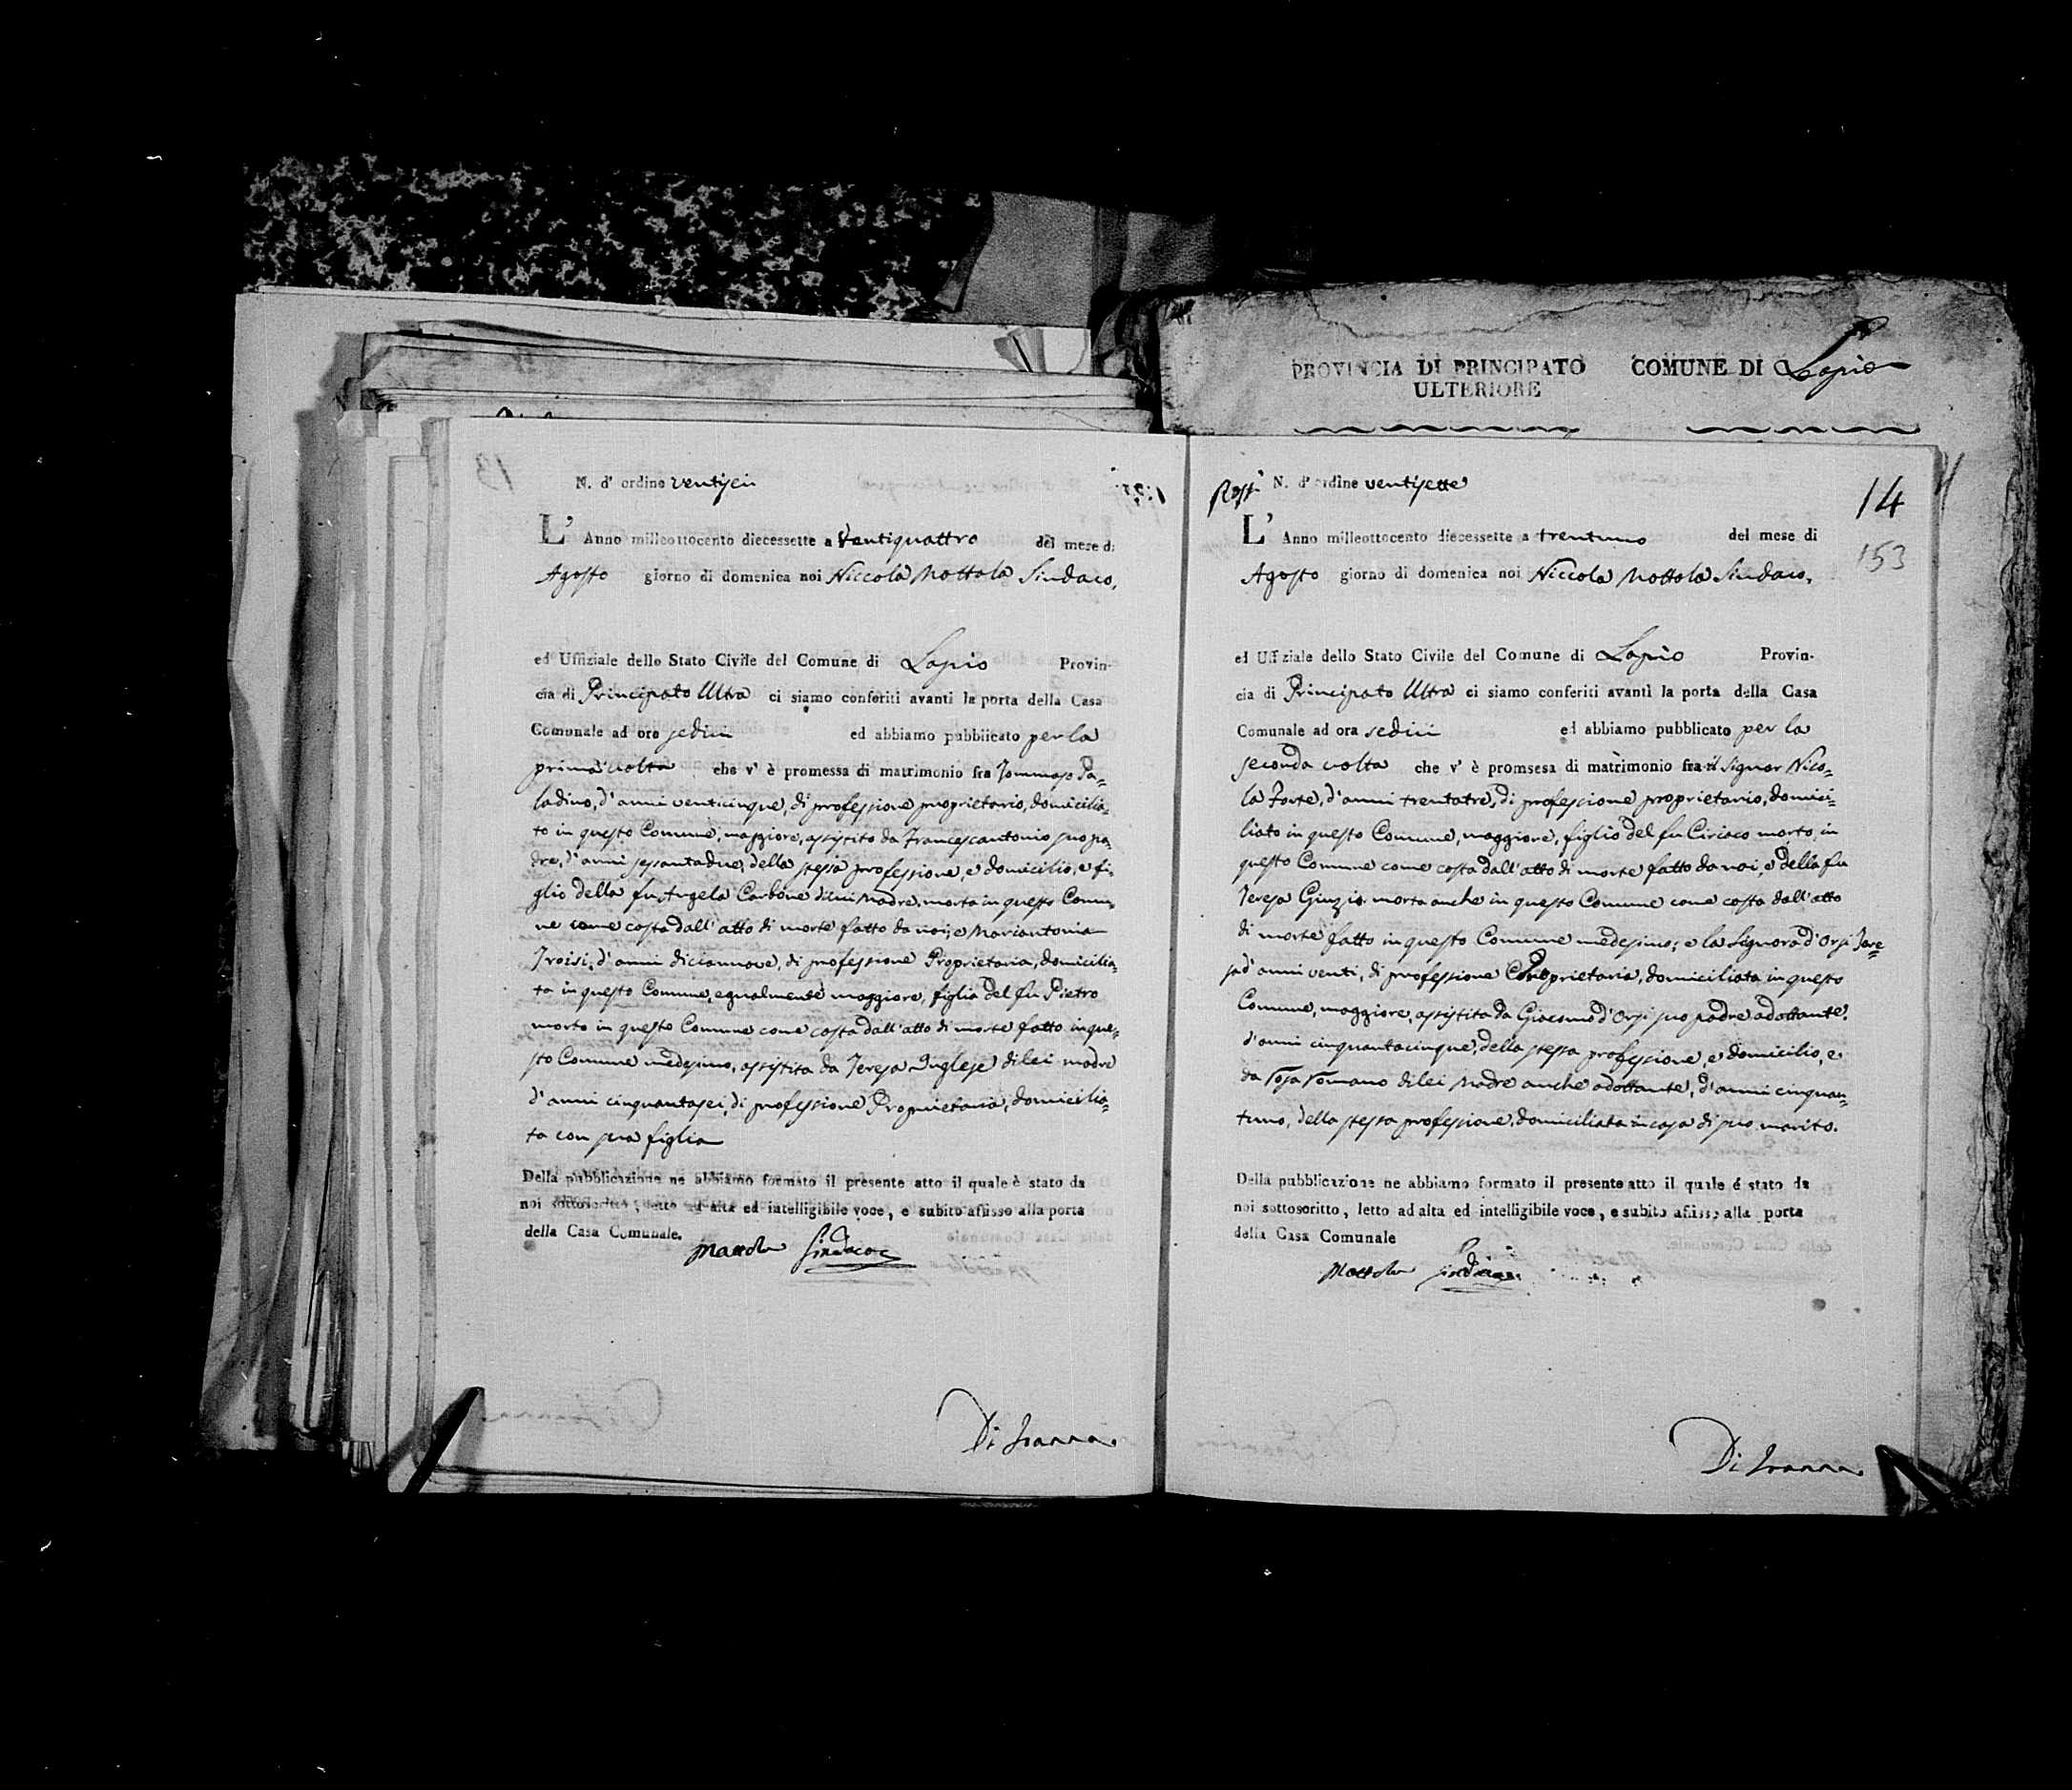 PROVINCIA DI PRINCIPATO
ULTERIORE
COMUNE DI Lapio
13
N. d' ordine ventisei
L' Anno milleottocento diecessette a Ventiquattro del mese di
Agosto giorno di domenica noi Niccola Mottola Sindaco,
ed Uffiziale dello Stato Civile del Comune di Lapio Provin-
cia di Principato Ultra ci siamo conferiti avanti la porta della Casa
Comunale ad ore sedici ed abbiamo pubblicato per la
prima volta che v' è promessa di matrimonio fra Tommaso Pa=
ladino, d'anni venticinque, di professione proprietario, domicilia=
to in questo Comune, maggiore, assistito da Francescantonio suo pa=
dre, d'anni sessantadue, della stessa professione, e domicilio, e fi=
glio della fu Angela Carbone di lui Madre, morta in questo Comu=
ne come costa dall'atto di morte fatto da noi; e Mariantonia
Troisi, d'anni diciannove, di professione Proprietaria, domicilia=
ta in questo Comune, egualmente maggiore, figlia del fu Pietro
morto in questo Comune come costa dall'atto di morte fatto in que=
sto Comune medesimo, assistita da Teresa Inglese di lei madre
d'anni cinquantasei, di professione Proprietaria, domicilia=
ta con sua figlia
Della pubblicazione ne abbiamo formato il presente atto il quale è stato da
noi sottoscritto, letto ad alta ed intelligibile voce, e subito affisso alla porta
della Casa Comunale.
Mottola Sindaco
Di Ioanna
N. d' ordine ventisette
14
153
L' Anno milleottocento diecessette a trentuno del mese di
Agosto giorno di domenica noi Niccola Mottola Sindaco,
ed Uffiziale dello Stato Civile del Comune di Lapio Provin-
cia di Principato Ultra ci siamo conferiti avanti la porta della Casa
Comunale ad ora sedici ed abbiamo pubblicato per la
seconda volta che v' è promsesa di matrimonio fra il Signor Nico=
la Forte, d'anni trentatre, di professione proprietario, domici=
liato in questo Comune, maggiore, figlio del fu Ciriaco morto in
questo Comune come costa dall'atto di morte fatto da noi, e della fu
Teresa Giunzio morta anche in questo Comune come costa dall'atto
di morte fatto in questo Comune medesimo; e la Signora d'Orsi Tere=
sa d'anni venti, di professione Proprietaria, domiciliata in questo
Comune, maggiore, assistita da Giacomo d'Orsi suo padre adottante,
d'anni cinquantacinque, della stessa professione, e domicilio, e
da Rosa Romano di lei Madre anche adottante, d'anni cinquan=
tuno, della stessa professione, domiciliata in casa di suo marito.
Della pubblicazione ne abbiamo formato il presente atto il quale è stato da
noi sottoscritto, letto ad alta ed intelligibile voce, e subito affisso alla porta
della Casa Comunale
Mottola Sindaco
Di Ioanna